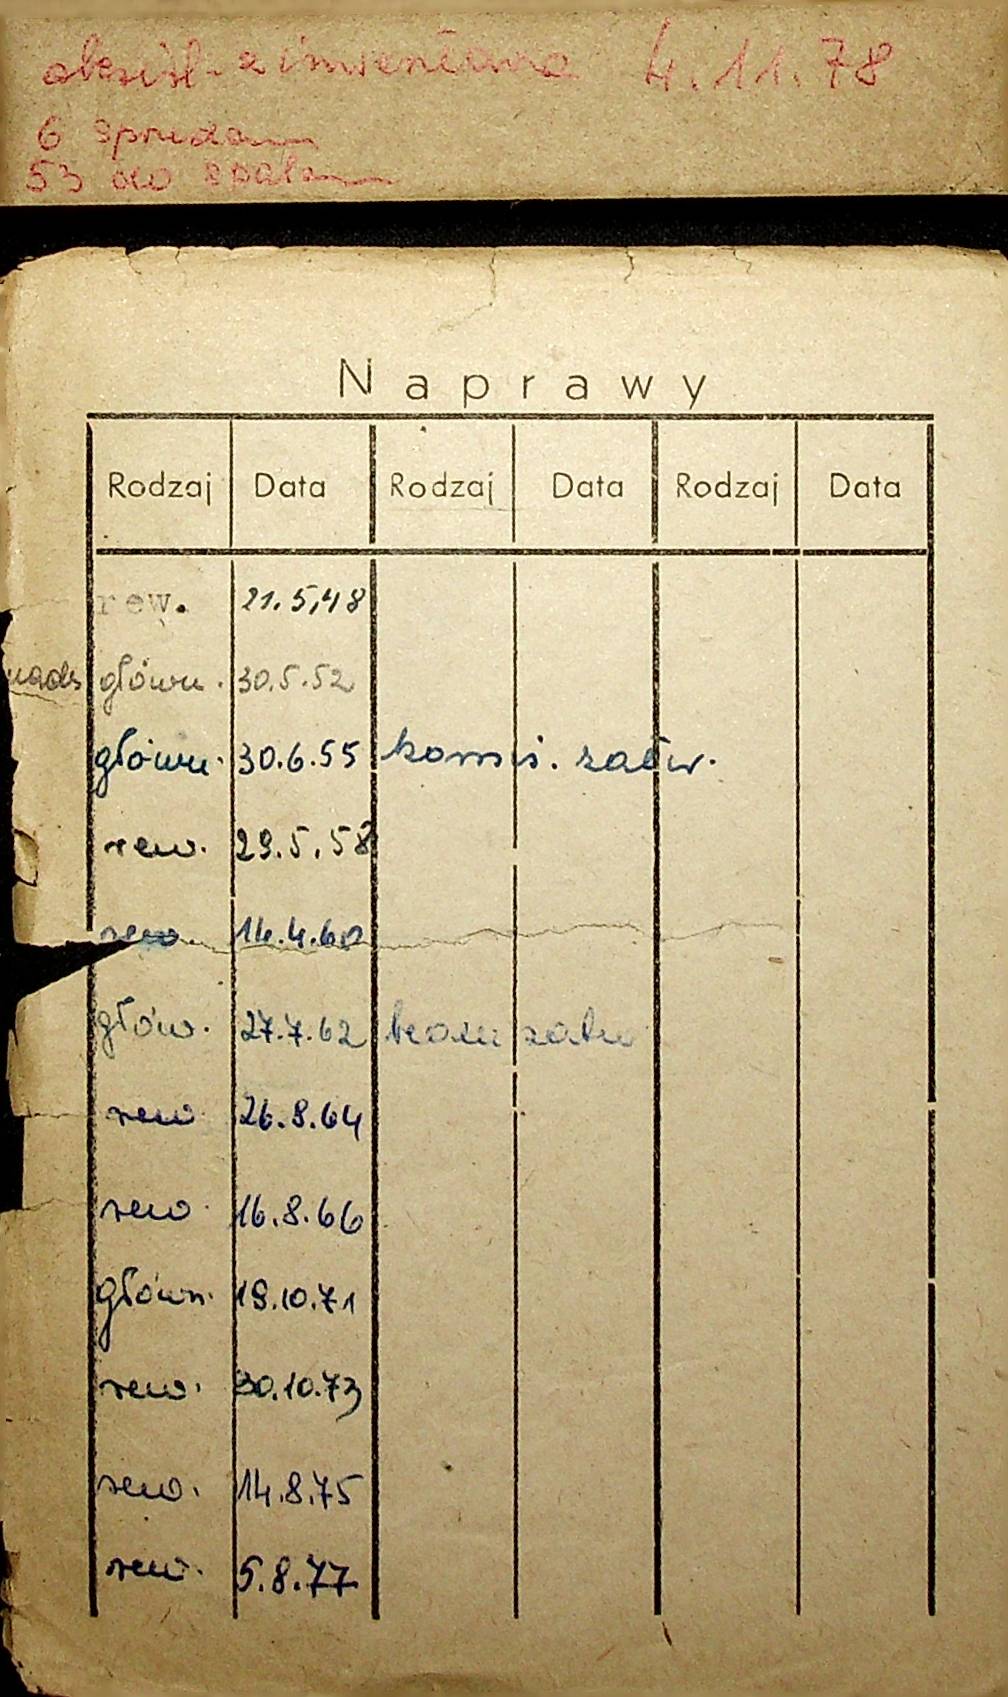 4.11.78
6
53 do
Naprawy
Rodzaj Data Rodzaj Data Rodzaj Data
rew. 21.5,48
główn. 30.5.52
główn. 30.6.55 komis. zatw.
rew. 29.5.58
rew. 14.4.60
głów. 27.7.62
rew 26.8.64
rew 16.8.66
główn. 19.10.71
rew. 30.10.73
rew. 14.8.75
rew. 5.8.77